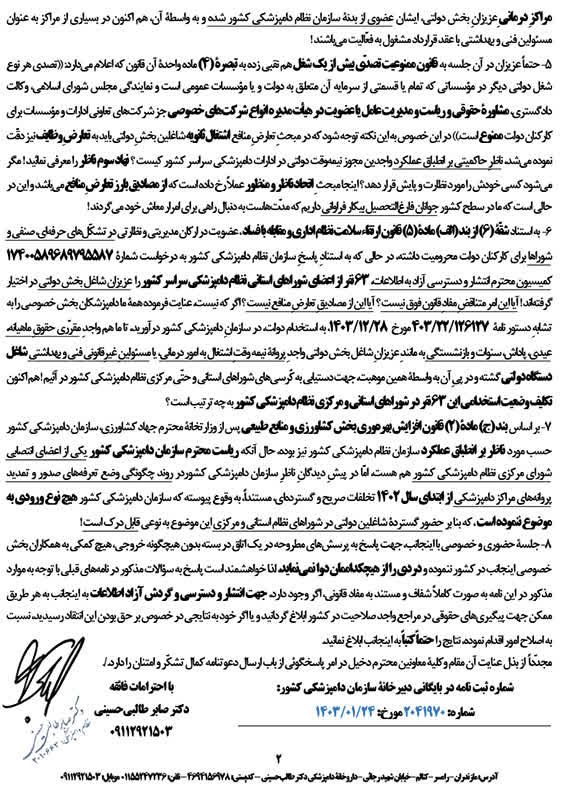 مراکز درمانی عزیزان بخش دولتی، ایشان عضوی از بدنۀ سازمان نظام دامپزشکی کشور شده و به واسطۀ آن، هم اکنون در بسیاری از مراکز به عنوان
مسئولین فنی و بهداشتی با عقد قرارداد مشغول به فعالیت می‌باشند!
۵- حتماً عزیزان در آن جلسه به قانون ممنوعیت تصدّی بیش از یک شغل هم نقبی زده به تبصرۀ (۴) ماده واحدۀ آن قانون که اعلام می‌دارد: ((تصدی هر نوع
شغل دولتی دیگر در مؤسساتی که تمام یا قسمتی از سرمایه آن متعلق به دولت و یا مؤسسات عمومی است و نمایندگی مجلس شورای اسلامی، وکالت
دادگستری، مشاورۀ حقوقی و ریاست و مدیریت عامل یا عضویت در هیأت مدیره انواع شرکت‌های خصوصی جز شرکت‌های تعاونی ادارات و مؤسسات برای
کارکنان دولت ممنوع است)) در این خصوص به این نکته توجه شود که در مبحث تعارض منافع اشتغال ثانویه شاغلین بخش دولتی باید به تعارض وظایف نیز دقّت
نموده می‌شد، ناظر حاکمیتی بر انطباق عملکرد واجدین مجوز نیمه‌وقت دولتی در ادارات دامپزشکی سراسر کشور کیست؟ نهاد سوم ناظر را معرفی نمائید! مگر
می‌شود کسی خودش را مورد نظارت و پایش قرار دهد؟ اینجا مبحث اتحاد ناظر و منظور عملاً رخ داده است که از مصادیق بارز تعارض منافع می‌باشد و این در
حالی است که ما در سطح کشور جوانان فارغ‌التحصیل بیکار فراوانی داریم که مدت‌هاست به دنبال راهی برای امرار معاش خود می‌گردند!
۶- به استناد شقّ (۶) از بند (الف) مادۀ (۵) قانون ارتقاء سلامت نظام اداری و مقابله با فساد، عضویت در ارکان مدیریتی و نظارتی در تشکّل‌های حرفه‌ای، صنفی و
شوراها برای کارکنان دولت محرومیت داشته، در حالی که به استناد پاسخ سازمان نظام دامپزشکی کشور به درخواست شمارۀ ۱۷۴۰۰۵۸۹۶۸۹۷۹۵۵۸۷
کمیسیون محترم انتشار و دسترسی آزاد به اطلاعات، ۶۳ نفر از اعضای شوراهای استانی نظام دامپزشکی سراسر کشور را عزیزان شاغل بخش دولتی در اختیار
گرفته‌اند! آیا این امر متناقض مفاد قانون فوق نیست؟ آیا این از مصادیق تعارض منافع نیست؟ اگر که نیست، عنایت فرموده همۀ ما دامپزشکان بخش خصوصی را به
تشابه دستور نامۀ ۴۰۳/۲۲/۱۲۶۱۲۷ مورخ ۱۴۰۳/۱۲/۲۸، به استخدام دولت، در سازمان دامپزشکی کشور درآورید، تا ما هم واجد مقرّری حقوق ماهیانه،
عیدی، پاداش، سنوات و بازنشستگی به مانند عزیزان شاغل بخش دولتی واجد پروانۀ نیمه وقت اشتغال به امور درمانی، یا مسئولین غیرقانونی فنی و بهداشتی شاغل
دستگاه دولتی گشته و در پی آن به واسطۀ همین موهبت، جهت دستیابی به کُرسی‌های شوراهای استانی و حتّی مرکزی نظام دامپزشکی کشور در آئیم! هم اکنون
تکلیف وضعیت استخدامی این ۶۳ نفر در شوراهای استانی و مرکزی نظام دامپزشکی کشور به چه ترتیب است؟
۷- بر اساس بند (ج) مادۀ (۲) قانون افزایش بهره‌وری بخش کشاورزی و منابع طبیعی پس از وزارتخانۀ محترم جهاد کشاورزی، سازمان دامپزشکی کشور
حسب مورد ناظر بر انطباق عملکرد سازمان نظام دامپزشکی کشور نیز بوده، حال آنکه ریاست محترم سازمان دامپزشکی کشور یکی از اعضای انتصابی
شورای مرکزی نظام دامپزشکی کشور هم هست، امّا در پیش دیدگان ناظر سازمان دامپزشکی کشور در روند چگونگی وضع تعرفه‌های صدور و تمدید
پروانه‌های مراکز دامپزشکی از ابتدای سال ۱۴۰۲ تخلفات صریح و گسترده‌ای، مستنداً، به وقوع پیوسته که سازمان دامپزشکی کشور هیچ نوع ورودی به
موضوع ننموده است، که بنا بر حضور گستردۀ شاغلین دولتی در شوراهای نظام استانی و مرکزی این موضوع به نوعی قابل درک است!
۸- جلسۀ حضوری و خصوصی با اینجانب، جهت پاسخ به پرسش‌های مطروحه در یک اتاق در بسته بدون هیچگونه خروجی، هیچ کمکی به همکاران بخش
خصوصی اینجانب در کشور ننموده و دردی را از هیچکداممان دوا نمی‌نماید، لذا خواهشمند است پاسخ به سؤالات مذکور در نامه‌های قبلی با توجه به موارد
مذکور در این نامه به صورت کاملاً شفاف و مستند به مفاد قانونی، اگر وجود دارد، جهت انتشار و دسترسی و گردش آزاد اطلاعات به اینجانب به هر طریق
ممکن جهت پیگیری‌های حقوقی در مراجع واجد صلاحیت در کشور ابلاغ گردانید و یا اگر خود به نتایجی در خصوص بر حق بودن این انتقاد رسیدید، نسبت
به اصلاح امور اقدام نموده، نتایج را حتماً کتباً به اینجانب ابلاغ نمائید.
مجدّداً از بذل عنایت آن مقام و کلیۀ معاونین محترم دخیل در امر پاسخگوئی از باب ارسال دعوتنامه کمال تشکّر و امتنان را دارد./.
شماره ثبت نامه در بایگانی دبیرخانۀ سازمان دامپزشکی کشور:
شماره: ۲۰۴۱۹۷۰ مورخ: ۱۴۰۳/۰۱/۲۴
با احترامات فائقه
دکتر صابر طالبی‌حسینی
۰۹۱۱۲۹۲۱۵۰۳
۲
آدرس: مازندران - رامسر - کتالم - خیابان شهید رجائی - داروخانۀ دامپزشکی دکتر طالب‌حسینی - کدپستی: ۴۶۹۴۱۵۶۹۷۸ - تلفن: ۰۱۱۵۵۲۴۷۲۳۶ موبایل: ۰۹۱۱۲۹۲۱۵۰۳